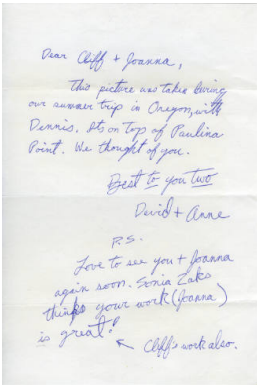 Dear Cliff + Joanna,
This picture was taken during
our summer trip in Oregon, with
Dennis. Its on top of Paulina
Point. We thought of you.
Best to you two
David + Anne
P.S.
Love to see you + Joanna
again soon. Sonia Zaks
thinks your work (Joanna)
is great!
← Cliff's work also.